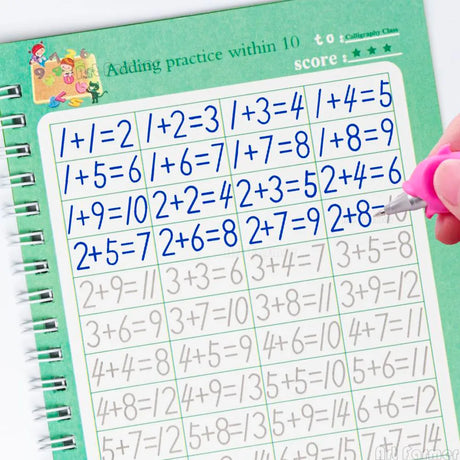 Adding practice within 10
to: Calligraphy Class
score: ★ ★ ★
1+1=2 1+2=3 1+3=4 1+4=5
1+5=6 1+6=7 1+7=8 1+8=9
1+9=10 2+2=4 2+3=5 2+4=6
2+5=7 2+6=8 2+7=9 2+8=10
2+9=11 3+3=6 3+4=7 3+5=8
3+6=9 3+7=10 3+8=11 3+9=12
4+4=8 4+5=9 4+6=10 4+7=11
4+8=12 4+9=13 5+5=10 5+6=11
5+7=12 5+8=13 5+9=14 6+6=12
6+9=15 7+7=14